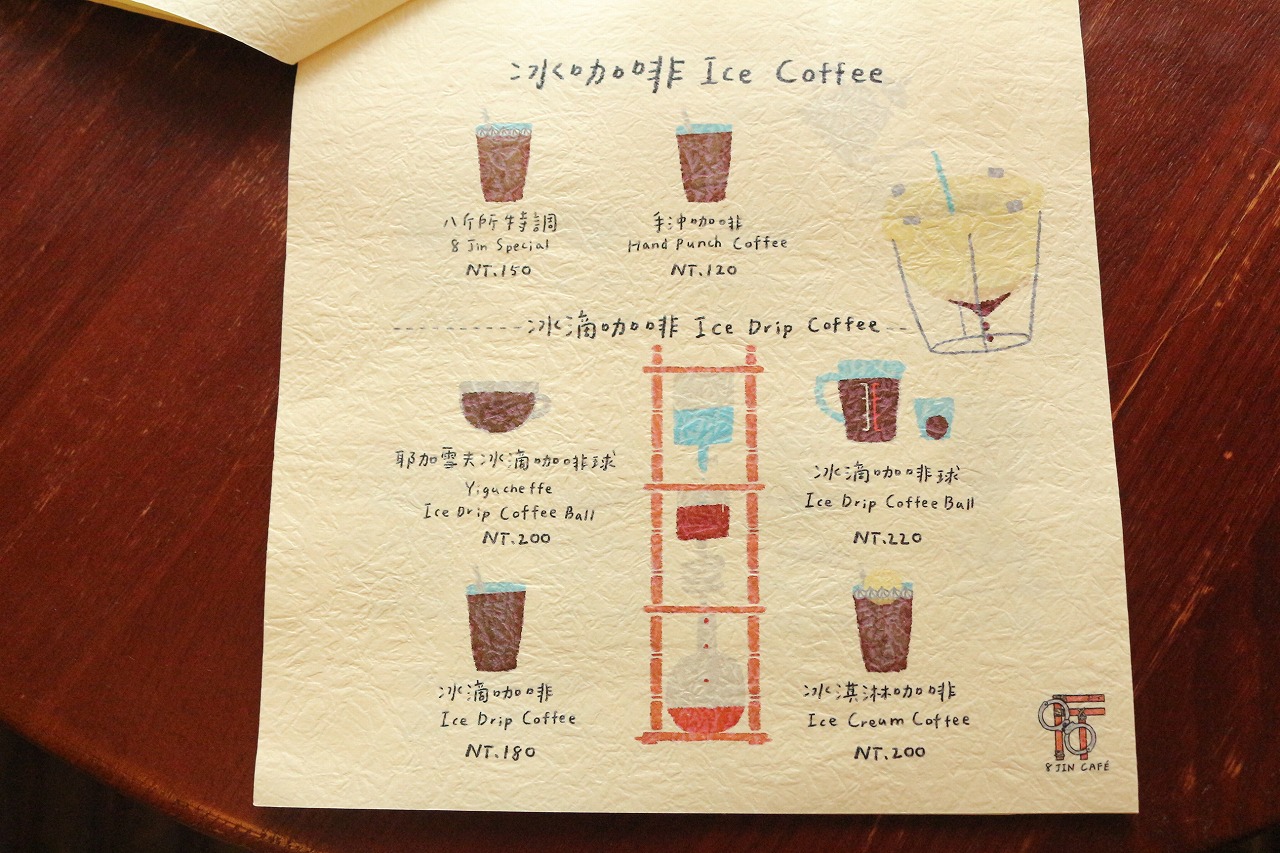 冰咖啡 Ice Coffee
八斤所特調
8 Jin Special
NT.150
手沖咖啡
Hand Punch Coffee
NT.120
冰滴咖啡 Ice Drip Coffee
耶加雪夫冰滴咖啡球
Yigucheffe
Ice Drip Coffee Ball
NT.200
冰滴咖啡球
Ice Drip Coffee Ball
NT.220
冰滴咖啡
Ice Drip Coffee
NT.180
冰淇淋咖啡
Ice Cream Coffee
NT.200
8 JIN CAFÉ